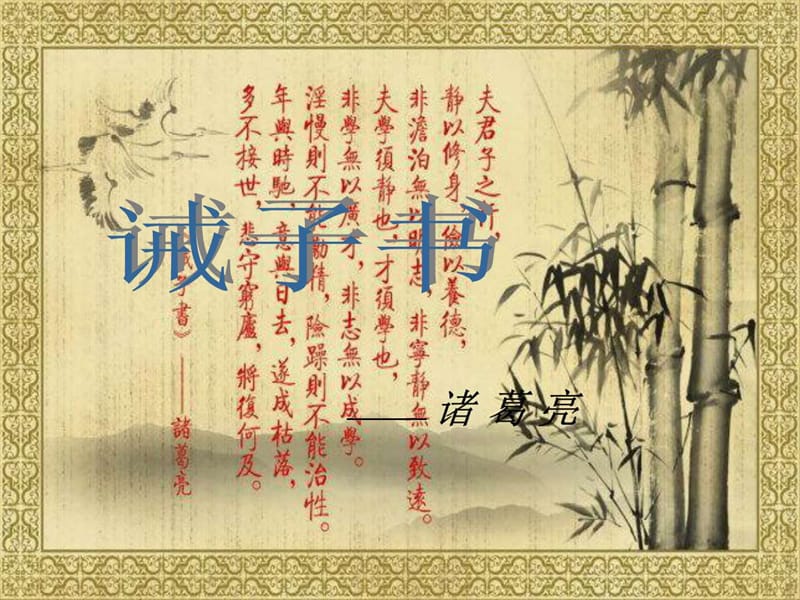 诫子书
——诸葛亮
夫君子之行，
靜以修身，儉以養德，
非澹泊無以明志，非寧靜無以致遠。
夫學須靜也，才須學也，
非學無以廣才，非志無以成學。
淫慢則不能勵精，險躁則不能治性。
年與時馳，意與日去，遂成枯落，
多不接世，悲守窮廬，將復何及。
《誡子書》——諸葛亮